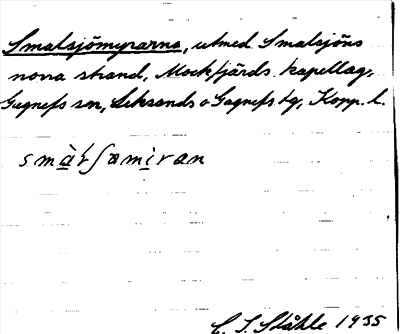 Smalsjömyrarna, utmed Smalsjöns
norra strand, Mockfjärds kapellag,
Gagnefs sn, Leksands o Gagnefs tg, Kopp. l.
C. I. Ståhle 1935